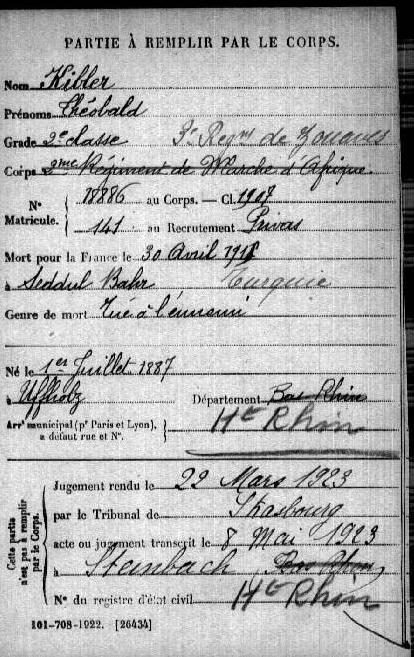 PARTIE À REMPLIR PAR LE CORPS.
Nom Kibler
Prénoms Théobald
Grade 2e classe 3e Regnt de Zouaves
Corps 2me Régiment de Marche d'Afrique
N° 18886 au Corps. — Cl. 1907
Matricule. 141 au Recrutement Privas
Mort pour la France le 30 Avril 1915
à Seddul Bahr Turquie
Genre de mort Tué à l'ennemi
Né le 1er Juillet 1887
à Uffholz Département Bas Rhin
Arrt municipal (pr Paris et Lyon), à défaut rue et N°. Ht Rhin
Cette partie n'est pas à remplir par le Corps.
Jugement rendu le 22 Mars 1923
par le Tribunal de Strasbourg
acte ou jugement transcrit le 8 Mai 1923
à Steinbach Bas Rhin
N° du registre d'état civil Ht Rhin
101-708-1922. [26434]